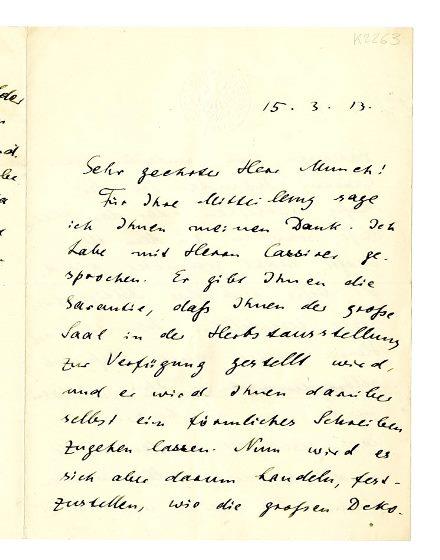 K2263
15. 3. 13.
Sehr geehrter Herr Munch!
Für Ihre Mitteilung sage
ich Ihnen meinen Dank. Ich
habe mit Herrn Cassirer ge-
sprochen. Er gibt Ihnen die
Garantie, daß Ihnen der große
Saal in der Herbstausstellung
zur Verfügung gestellt wird,
und er wird Ihnen darüber
selbst ein förmliches Schreiben
zugehen lassen. Nun wird es
sich aber darum handeln, fest-
zustellen, wie die großen Deko-